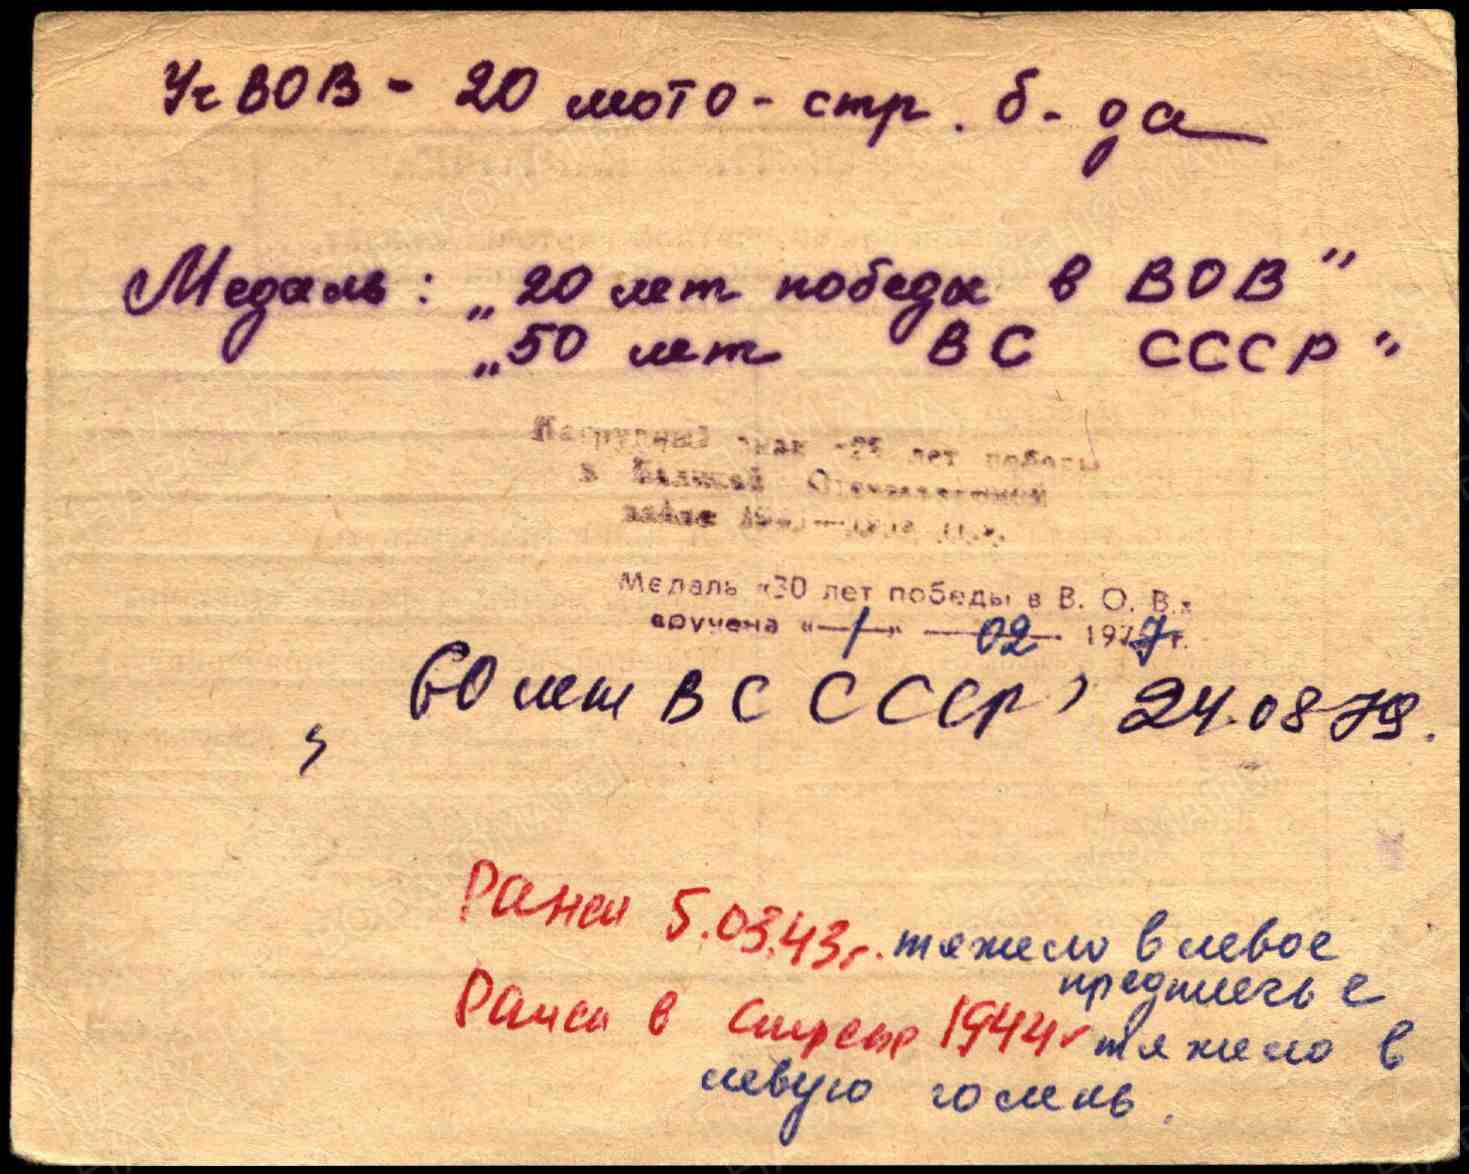 Уч ВОВ - 20 мото-стр. б-да
Медаль: „20 лет победы в ВОВ"
„50 лет ВС СССР"
Нагрудный знак «25 лет победы
в Великой Отечественной
войне
Медаль «30 лет победы в В. О. В.»
вручена «1» 02 1977 г.
60 лет ВС СССР" 24.08 79.
Ранен 5.03.43г. тяжело в левое
предплечье
Ранен в 1944г тяжело в
левую голень.